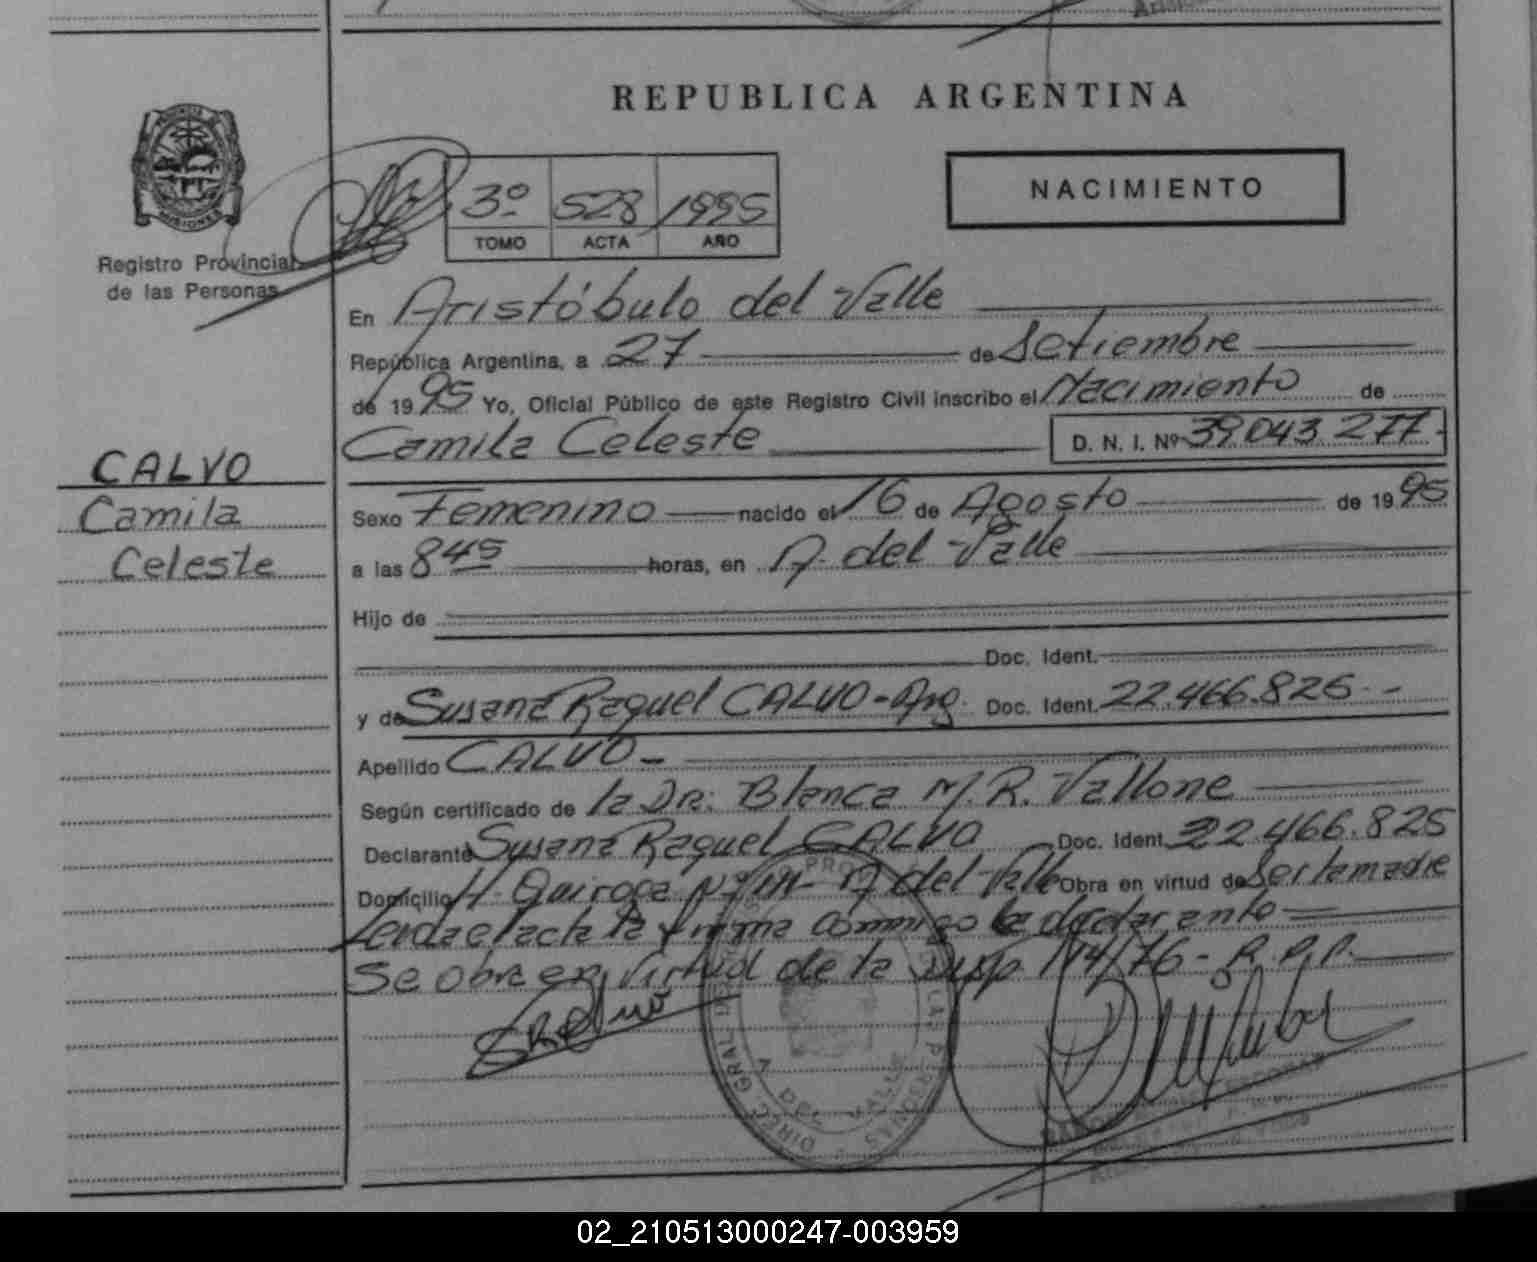 REPUBLICA ARGENTINA
PROVINCIA DE
MISIONES
Registro Provincial
de las Personas
3º 528 1995
TOMO ACTA AÑO
NACIMIENTO
En Aristóbulo del Valle
República Argentina, a 27 de Setiembre
de 1995 Yo, Oficial Público de este Registro Civil inscribo el Nacimiento de
Camila Celeste D. N. I. Nº 39.043.277-
CALVO
Camila
Celeste
Sexo Femenino nacido el 16 de Agosto de 1995
a las 8 45 horas, en A. del Valle
Hijo de
Doc. Ident.
y de Susana Raquel CALVO-Arg. Doc. Ident. 22.466.825--
Apellido CALVO-
Según certificado de la Dra. Blanca M. R. Vallone
Declarante Susana Raquel CALVO Doc. Ident. 22.466.825
Domicilio H. Quiroga A del Valle Obra en virtud de Ser la madre
Leida el acta la firma conmigo la declarante
Se obra en virtud de la Disp 114/76- R. P. P.
DIREC. GRAL. DE LAS PERSONAS
A. DEL VALLE
02_210513000247-003959